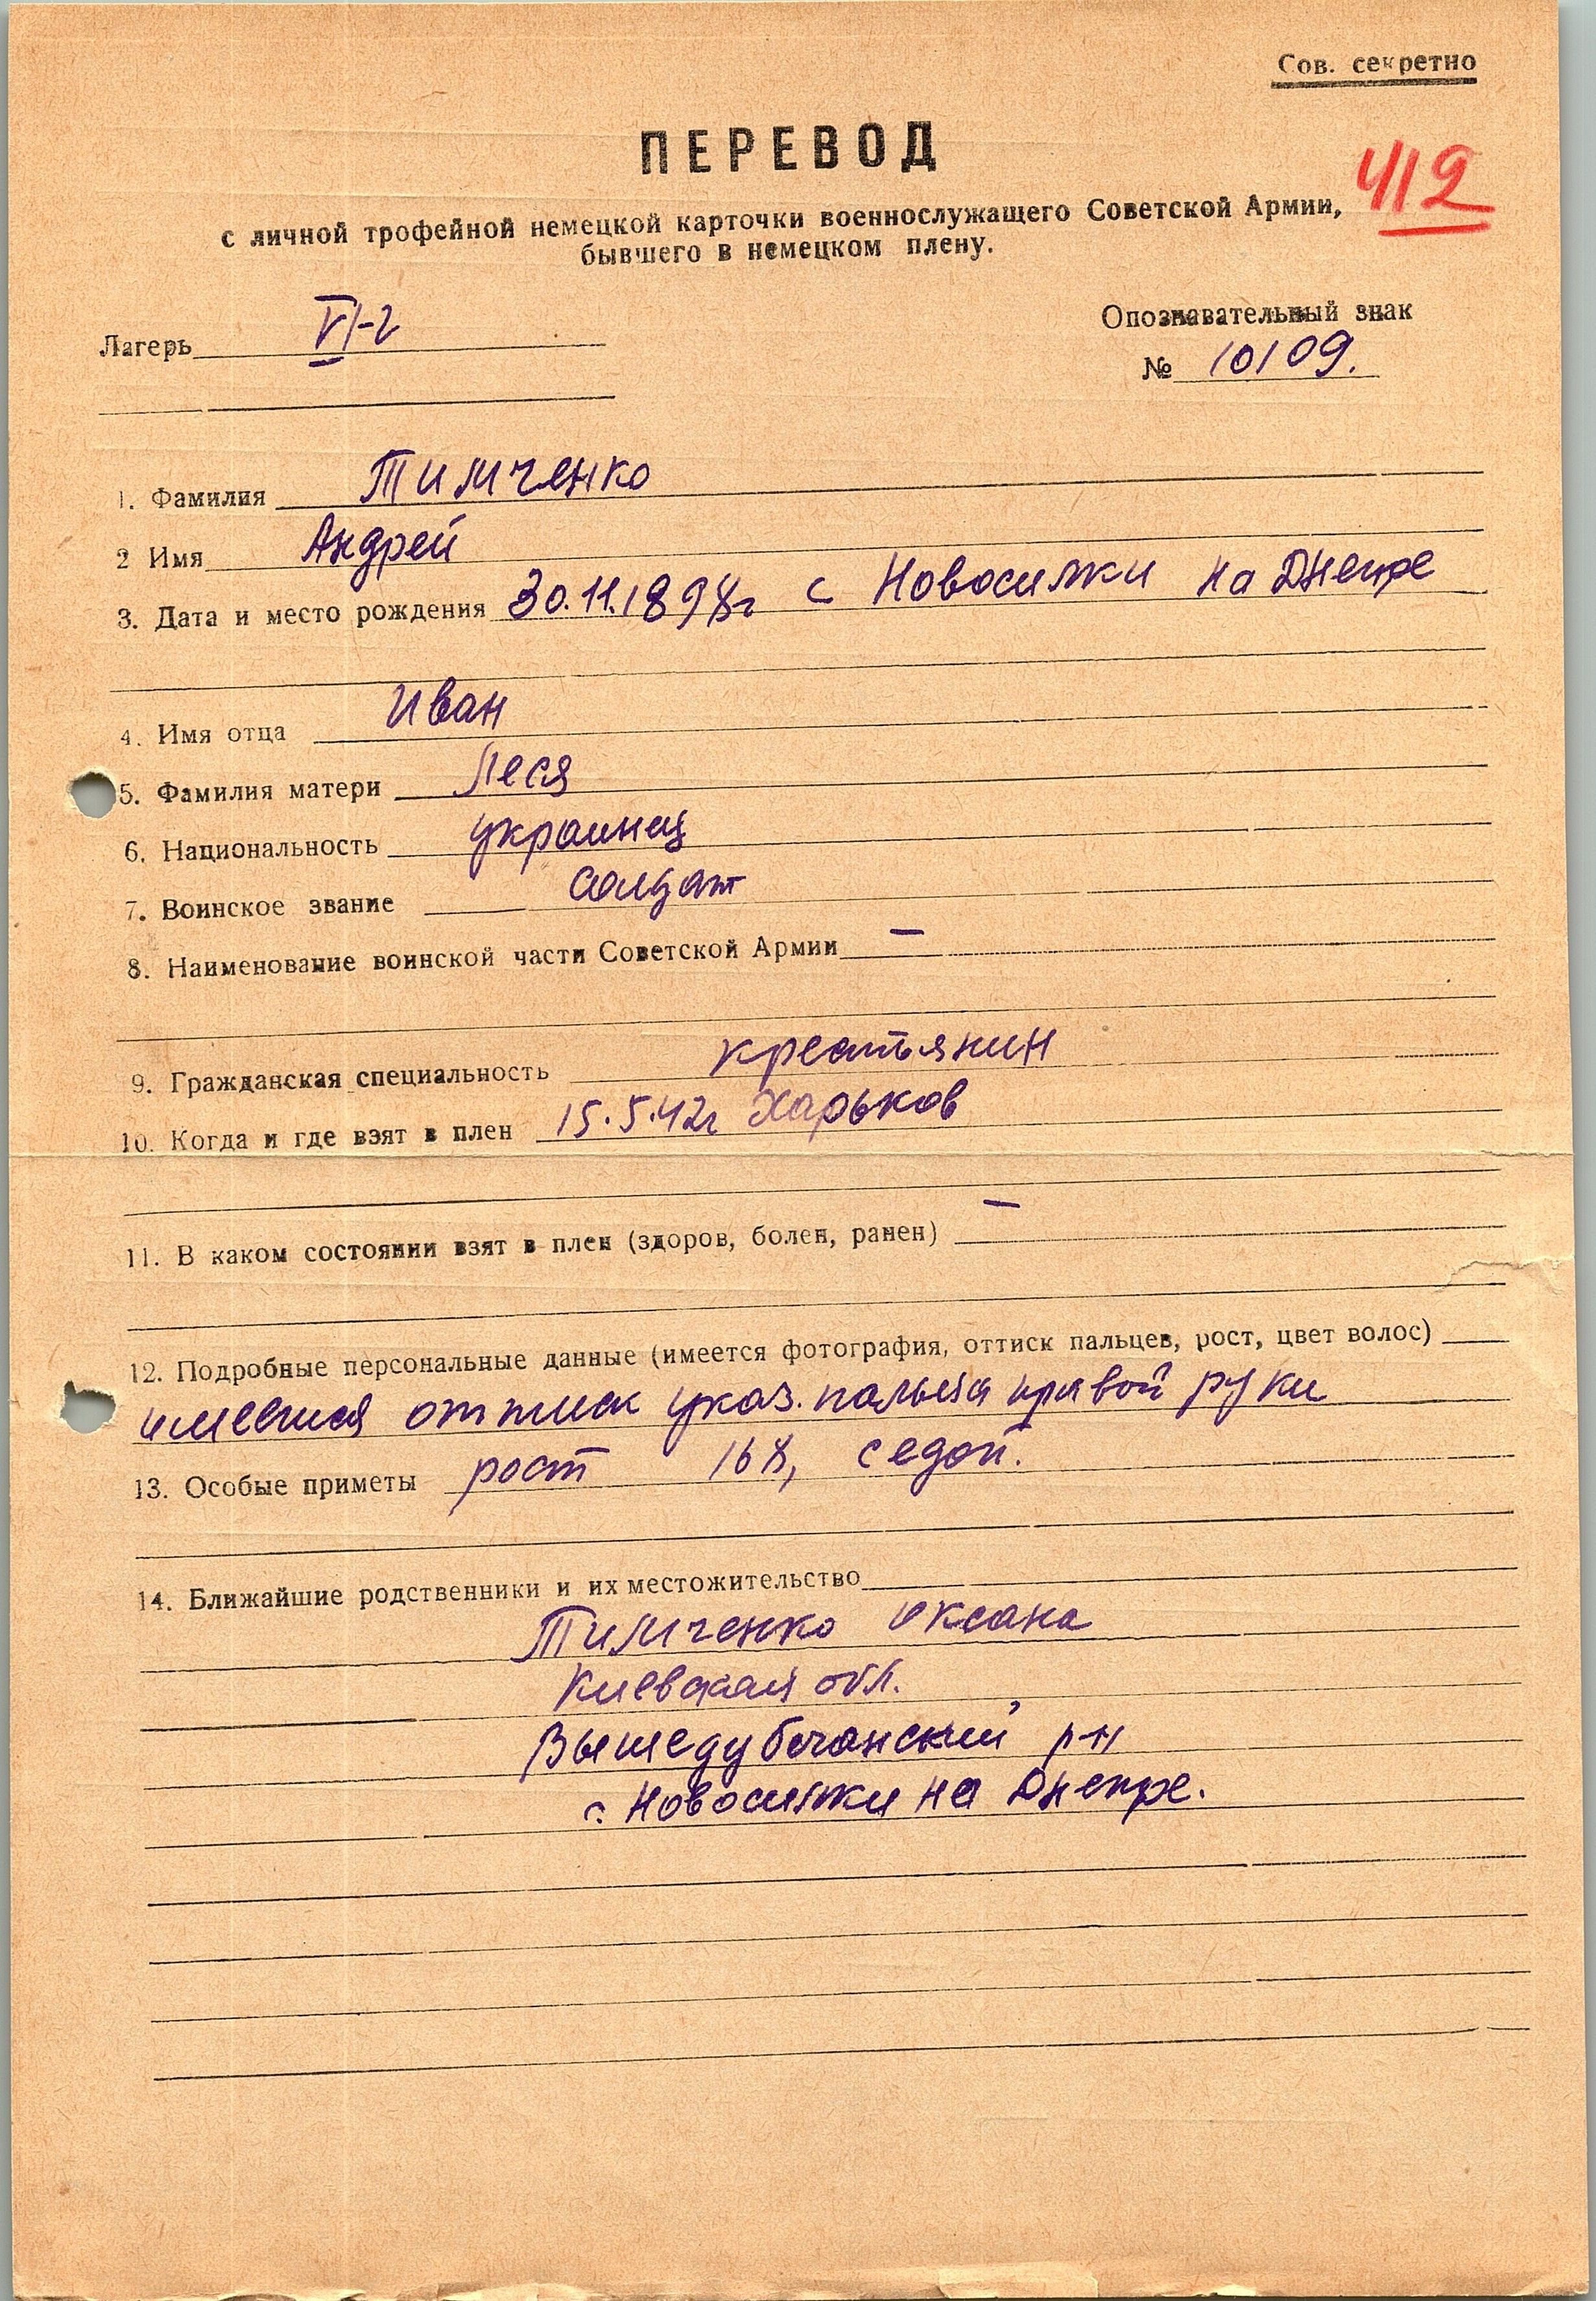 Сов. секретно
ПЕРЕВОД
412
с личной трофейной немецкой карточки военнослужащего Советской Армии,
бывшего в немецком плену.
Лагерь VI-г
Опознавательный знак
№ 10109.
1. Фамилия Тимченко
2 Имя Андрей
3. Дата и место рождения 30.11.1898г с Новосилки на Днепре
4. Имя отца Иван
5. Фамилия матери Леся
6. Национальность украинец
7. Воинское звание солдат
8. Наименование воинской части Советской Армии —
9. Гражданская специальность крестьянин
10. Когда и где взят в плен 15.5.42г Харьков
11. В каком состоянии взят в плен (здоров, болен, ранен) —
12. Подробные персональные данные (имеется фотография, оттиск пальцев, рост, цвет волос)
имеется оттиск указ. пальца правой руки
13. Особые приметы рост 168, седой.
14. Ближайшие родственники и их местожительство
Тимченко Оксана
Киевская обл.
Вышедубечанский р-н
с. Новосилки на Днепре.